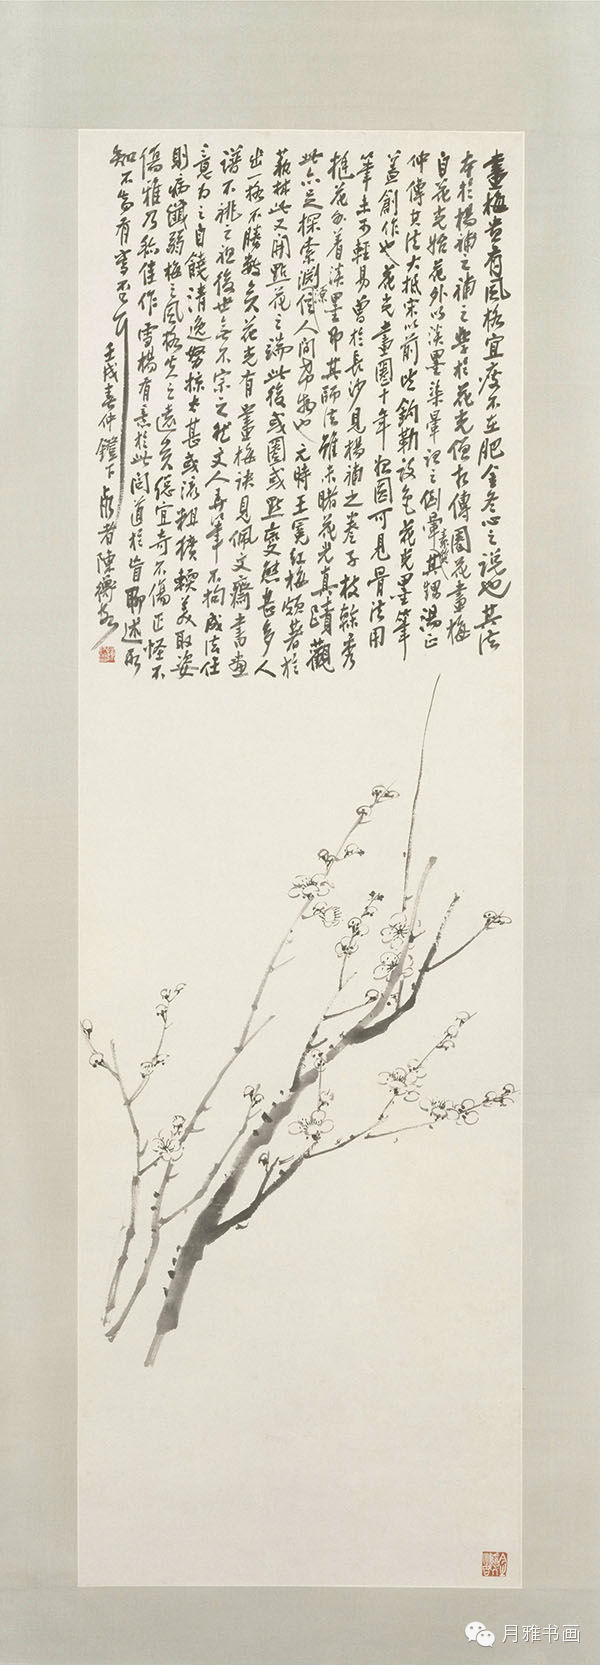 畫梅貴有風格宜瘦不在肥金冬心之說也其法
本於楊補之補之學於花光値右傳圈花畫梅
自花光始花外以淡墨染暈記之倒暈其歸湯正
仲傳其法大抵宋以前皆鉤勒設色花光墨筆
蓋創作也花光畫圈十年始圓可見骨法用
筆未可輕易曾於長沙見楊補之卷子枝榦秀
挺花外着淡墨即其師法雖未睹花光真蹟觀
此亦足探索淵源人間希物也元時王冕紅梅頗著於
藝林此又開點花之端此後或圈或點變態甚多人
出一格不勝數矣花光有畫梅訣見佩文齋書畫
譜不祧之祖後世無不宗之然文人弄筆不拘成法任
意為之自饒清逸努掠太甚或流粗獷輭美取姿
則病纖弱梅之風格失之遠矣總宜奇不傷正怪不
傷雅乃稱佳作雪楊有意於此問道於盲聊述所
知不知有當否
壬戌春仲鐙下 陳衡恪
月雅书画